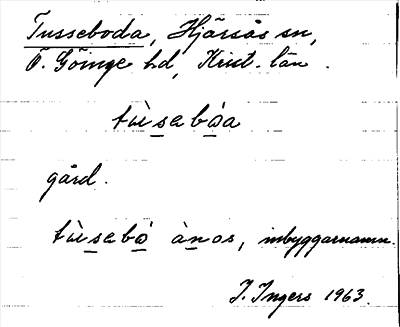 Tusseboda, Hjärsås sn,
Ö. Göinge hd, Krist. län.
tùsebòa
gård.
tùsebò ànos, inbyggarnamn.
I. Ingers 1963.